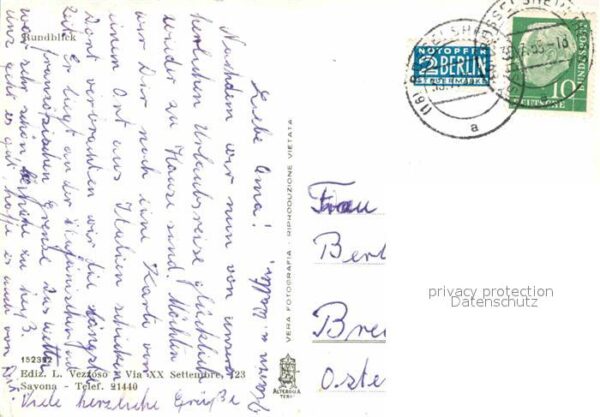 Rundblick
Liebe Oma!
Nachdem wir nun von unserer
herrlichen Urlaubsreise glücklich
wieder zu Hause sind, möchten
wir Dir noch eine Karte von
einem Ort aus Italien schicken.
Dort verbrachten wir die längste
Er liegt an der italienischen
französischen Grenze. Das Wetter
war sehr schön zu heiß.
uns geht es gut, hoffe es auch von Dir.
Viele herzliche Grüße
152392
Ediz. L. Vezzoso - Via XX Settembre, 123
Savona - Telef. 21440
VERA FOTOGRAFIA - RIPRODUZIONE VIETATA
ALTEROCCA
TERNI
NOTOPFER
2 BERLIN
STEUERMARKE
(16)
a
10
DEUTSCHE
BUNDESPOST
Frau
Bert
Bre
Oste
privacy protection
Datenschutz